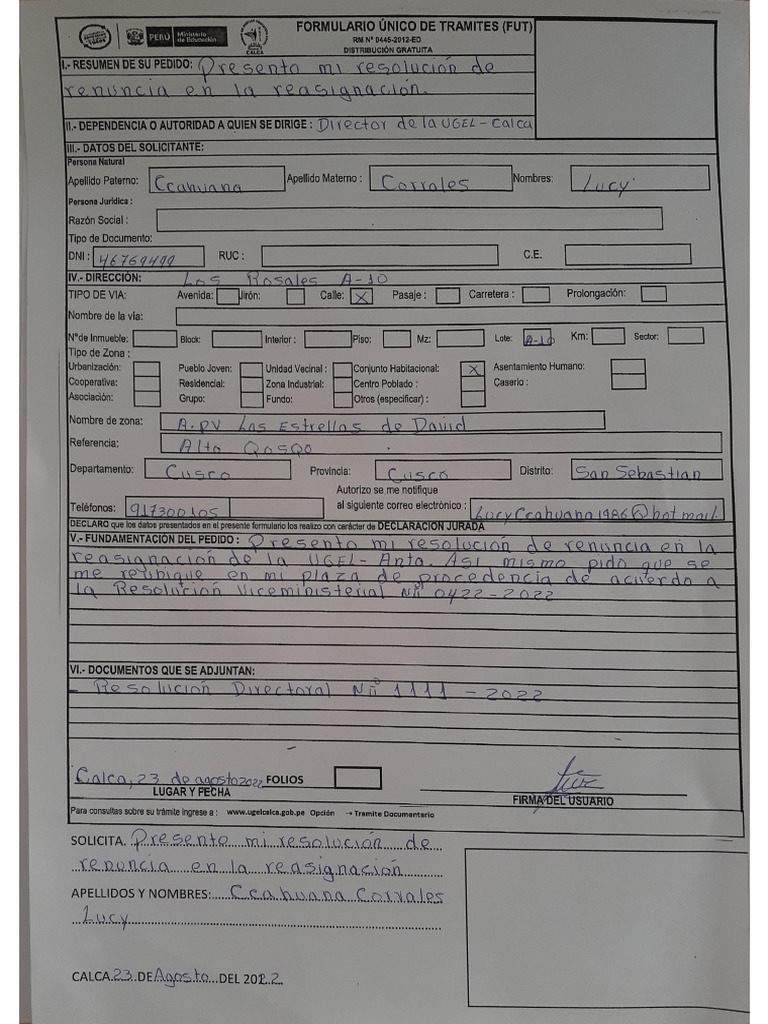 PERÚ Ministerio de Educación
CALCA
FORMULARIO ÚNICO DE TRAMITES (FUT)
RM N° 0445-2012-ED
DISTRIBUCIÓN GRATUITA
I.- RESUMEN DE SU PEDIDO: Presento mi resolución de
renuncia en la reasignación.
II.- DEPENDENCIA O AUTORIDAD A QUIEN SE DIRIGE : Director de la UGEL - Calca
III.- DATOS DEL SOLICITANTE:
Persona Natural
Apellido Paterno: Ccahuana Apellido Materno : Corrales Nombres: Lucy
Persona Jurídica :
Razón Social :
Tipo de Documento:
DNI : 46769499 RUC : C.E.
IV.- DIRECCIÓN: Los Rosales A-10
TIPO DE VIA: Avenida: Jirón: Calle: X Pasaje : Carretera : Prolongación:
Nombre de la vía:
N°de Inmueble: Block: Interior : Piso: Mz: Lote: A-10 Km: Sector:
Tipo de Zona :
Urbanización: Pueblo Joven: Unidad Vecinal : Conjunto Habitacional: X Asentamiento Humano:
Cooperativa: Residencial: Zona Industrial: Centro Poblado : Caserio :
Asociación: Grupo: Fundo: Otros (especificar) :
Nombre de zona: A.PV Las Estrellas de David
Referencia: Alto Qosqo
Departamento: Cusco Provincia: Cusco Distrito: San Sebastian
Autorizo se me notifique
Teléfonos: 917300105 al siguiente correo electrónico : LucyCcahuana1986@hotmail.
DECLARO que los datos presentados en el presente formulario los realizo con carácter de DECLARACIÓN JURADA
V.- FUNDAMENTACIÓN DEL PEDIDO : Presento mi resolución de renuncia en la
reasignación de la UGEL- Anta. Asi mismo pido que se
me reubique en mi plaza de procedencia de acuerdo a
la Resolución Viceministerial Nº 0422-2022
VI.- DOCUMENTOS QUE SE ADJUNTAN:
- Resolución Directoral Nº 1111 - 2022
Calca, 23 de agosto 2022 FOLIOS
LUGAR Y FECHA
FIRMA DEL USUARIO
Para consultas sobre su trámite ingrese a : www.ugelcalca.gob.pe Opción → Tramite Documentario
SOLICITA. Presento mi resolución de
renuncia en la reasignación
APELLIDOS Y NOMBRES: Ccahuana Corrales
Lucy
CALCA 23 DE Agosto DEL 2022